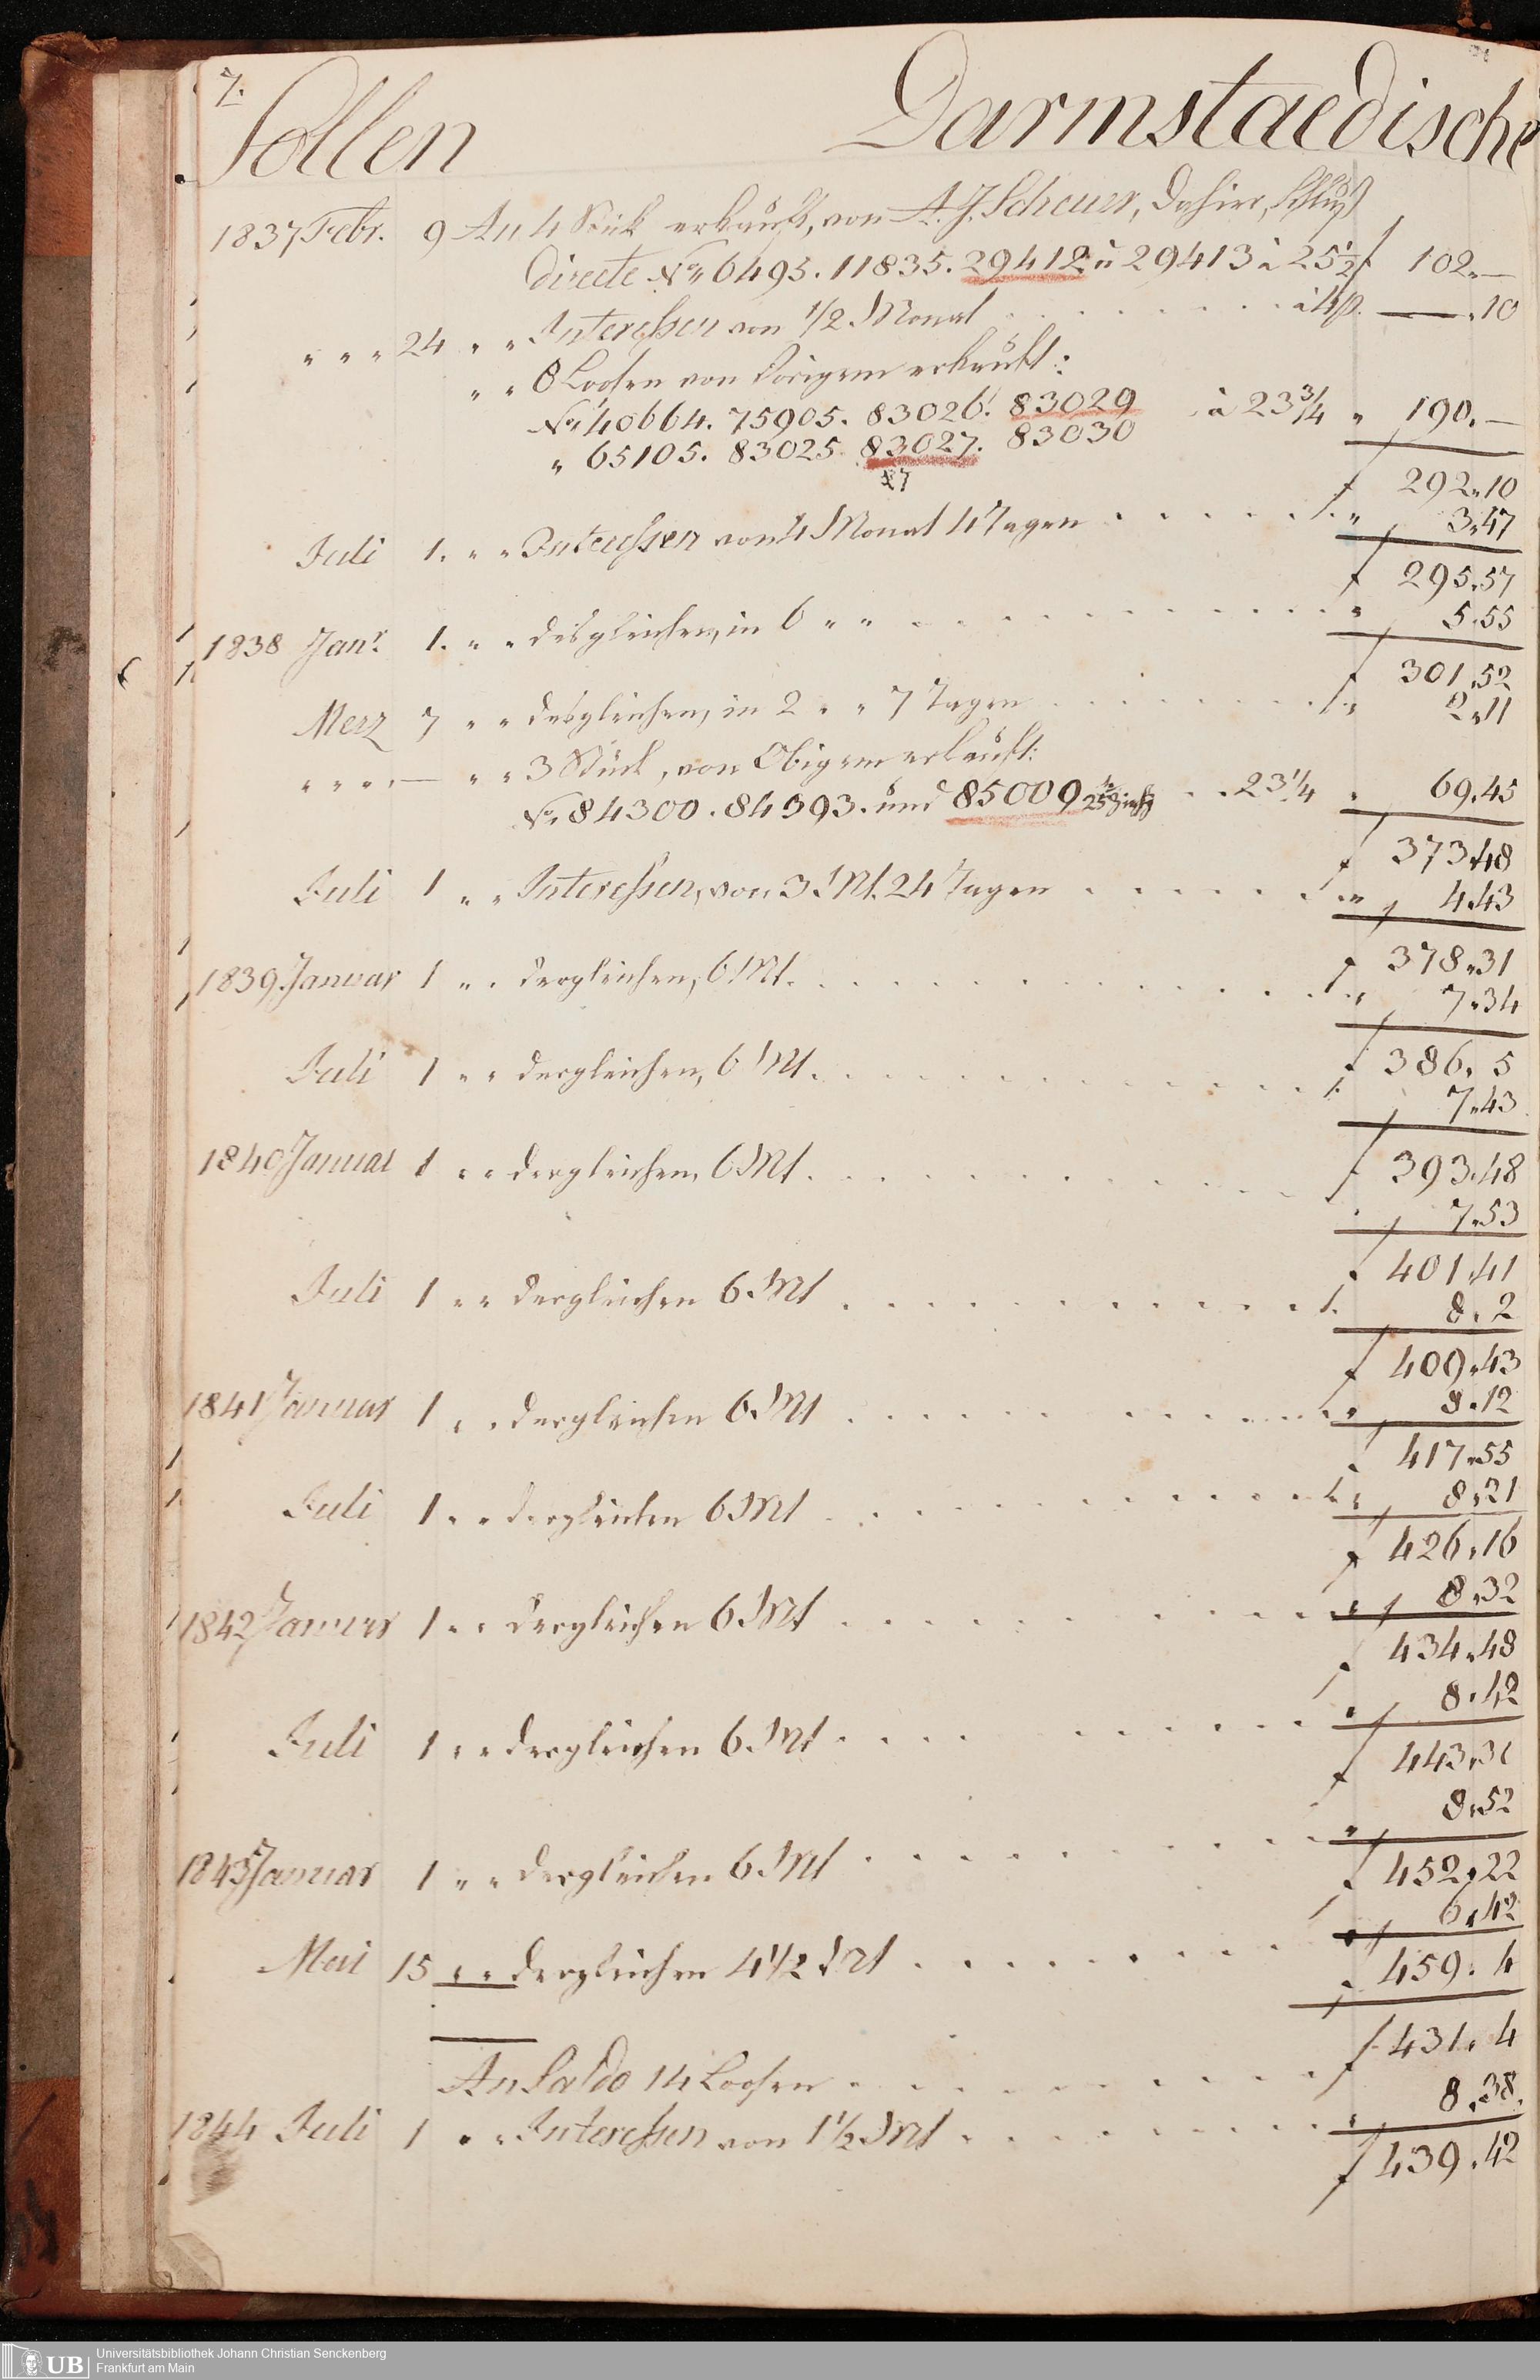 7.
Sollen Darmstaedische
1837 Febr. 9 An 4 Stück erkauft, von A. J. Scheuer, dahier,
directe No 6495. 11835. 29412 u 29413 à 25½ f 102. —
" " " 24 " " Interessen von 1/2 Monat . . . . . à 4 p. — . 10
" " 8 Loosen von Vorigem erkauft:
No 40664. 75905. 83026. 83029 à 23¾ " 190. —
" 65105. 83025. 83027. 83030
f 292. 10
Juli 1. " " Interessen von 4 Monat 4 Tagen . . . . . " 3. 47
f 295. 57
1838 Janr. 1. " " desgleichen, in 6 " " . . . . . " 5. 55
f 301. 52
Merz 7 " " desgleichen, in 2 " " 7 Tagen . . . . . " 2. 11
" " " — " " 3 Stück, von Obigem erkauft:
No 84300. 84393. und 85009 . . 23¼ " 69. 45
f 373. 48
Juli 1 " " Interessen, von 3 Mt. 24 Tagen . . . . . " 4. 43
f 378. 31
1839 Januar 1 " " dergleichen, 6 Mt. . . . . . " 7. 34
f 386. 5
Juli 1 " " dergleichen, 6 Mt. . . . . . 7. 43
f 393. 48
1840 Januar 1 " " dergleichen, 6 Mt. . . . . . 7. 53
f 401. 41
Juli 1 " " dergleichen 6 Mt . . . . . 8. 2
f 409. 43
1841 Januar 1 " " dergleichen 6 Mt . . . . . " 8. 12
f 417. 55
Juli 1 " " dergleichen 6 Mt . . . . . " 8. 21
f 426. 16
1842 Januar 1 " " dergleichen 6 Mt . . . . . " 8. 32
f 434. 48
Juli 1 " " dergleichen 6 Mt . . . . . " 8. 42
f 443. 30
1843 Januar 1 " " dergleichen 6 Mt . . . . . " 8. 52
f 452. 22
Mai 15 " " dergleichen 4 1/2 Mt . . . . . " 6. 42
f 459. 4
An Saldo 14 Loosen . . . . . f 431. 4
1844 Juli 1 " " Interessen von 1 1/2 Mt . . . . . " 8. 38.
f 439. 42
UB
Universitätsbibliothek Johann Christian Senckenberg
Frankfurt am Main